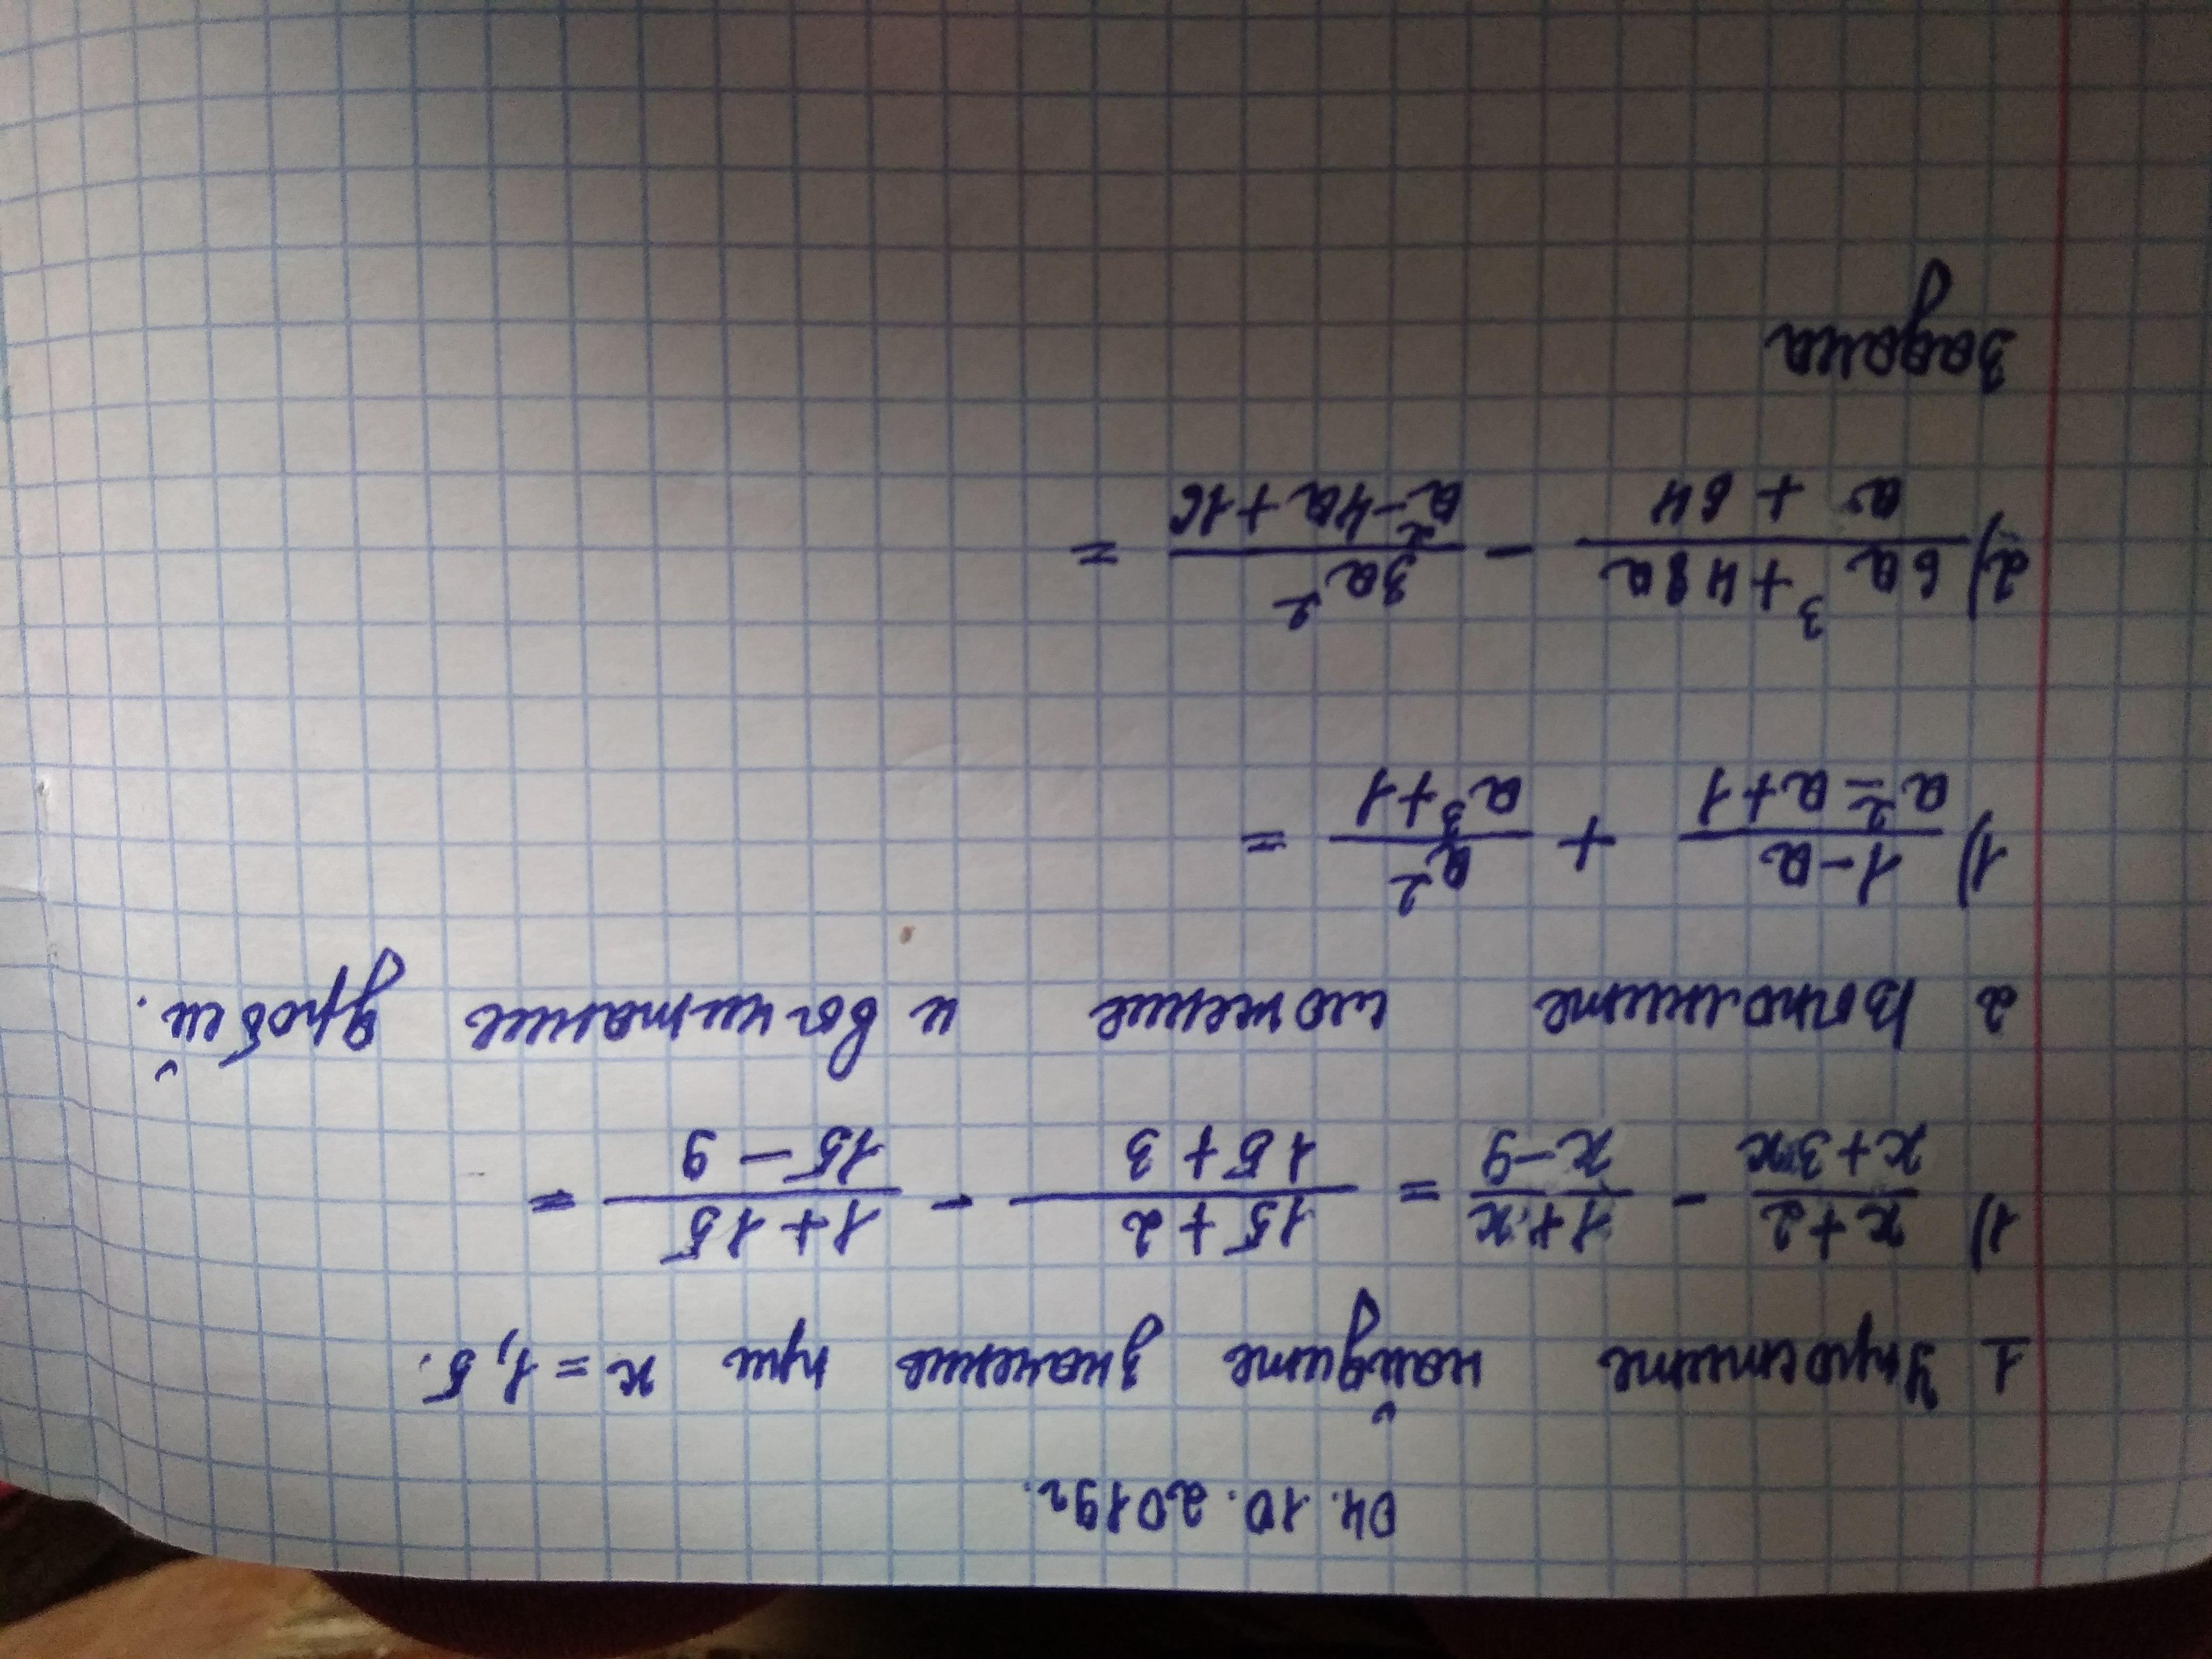 04.10.2019г.
1 Упростите найдите значение при x = 1,5.
1) \frac{x+2}{x+3x} - \frac{1+x}{x-9} = \frac{15+2}{15+3} - \frac{1+15}{15-9} =
2 Выполните сложение и вычитание дробей.
1) \frac{1-a}{a^2-a+1} + \frac{a^2}{a^3+1} =
2) \frac{6a^3+48a}{a+64} - \frac{3a^2}{a^2-4a+16} =
Задача